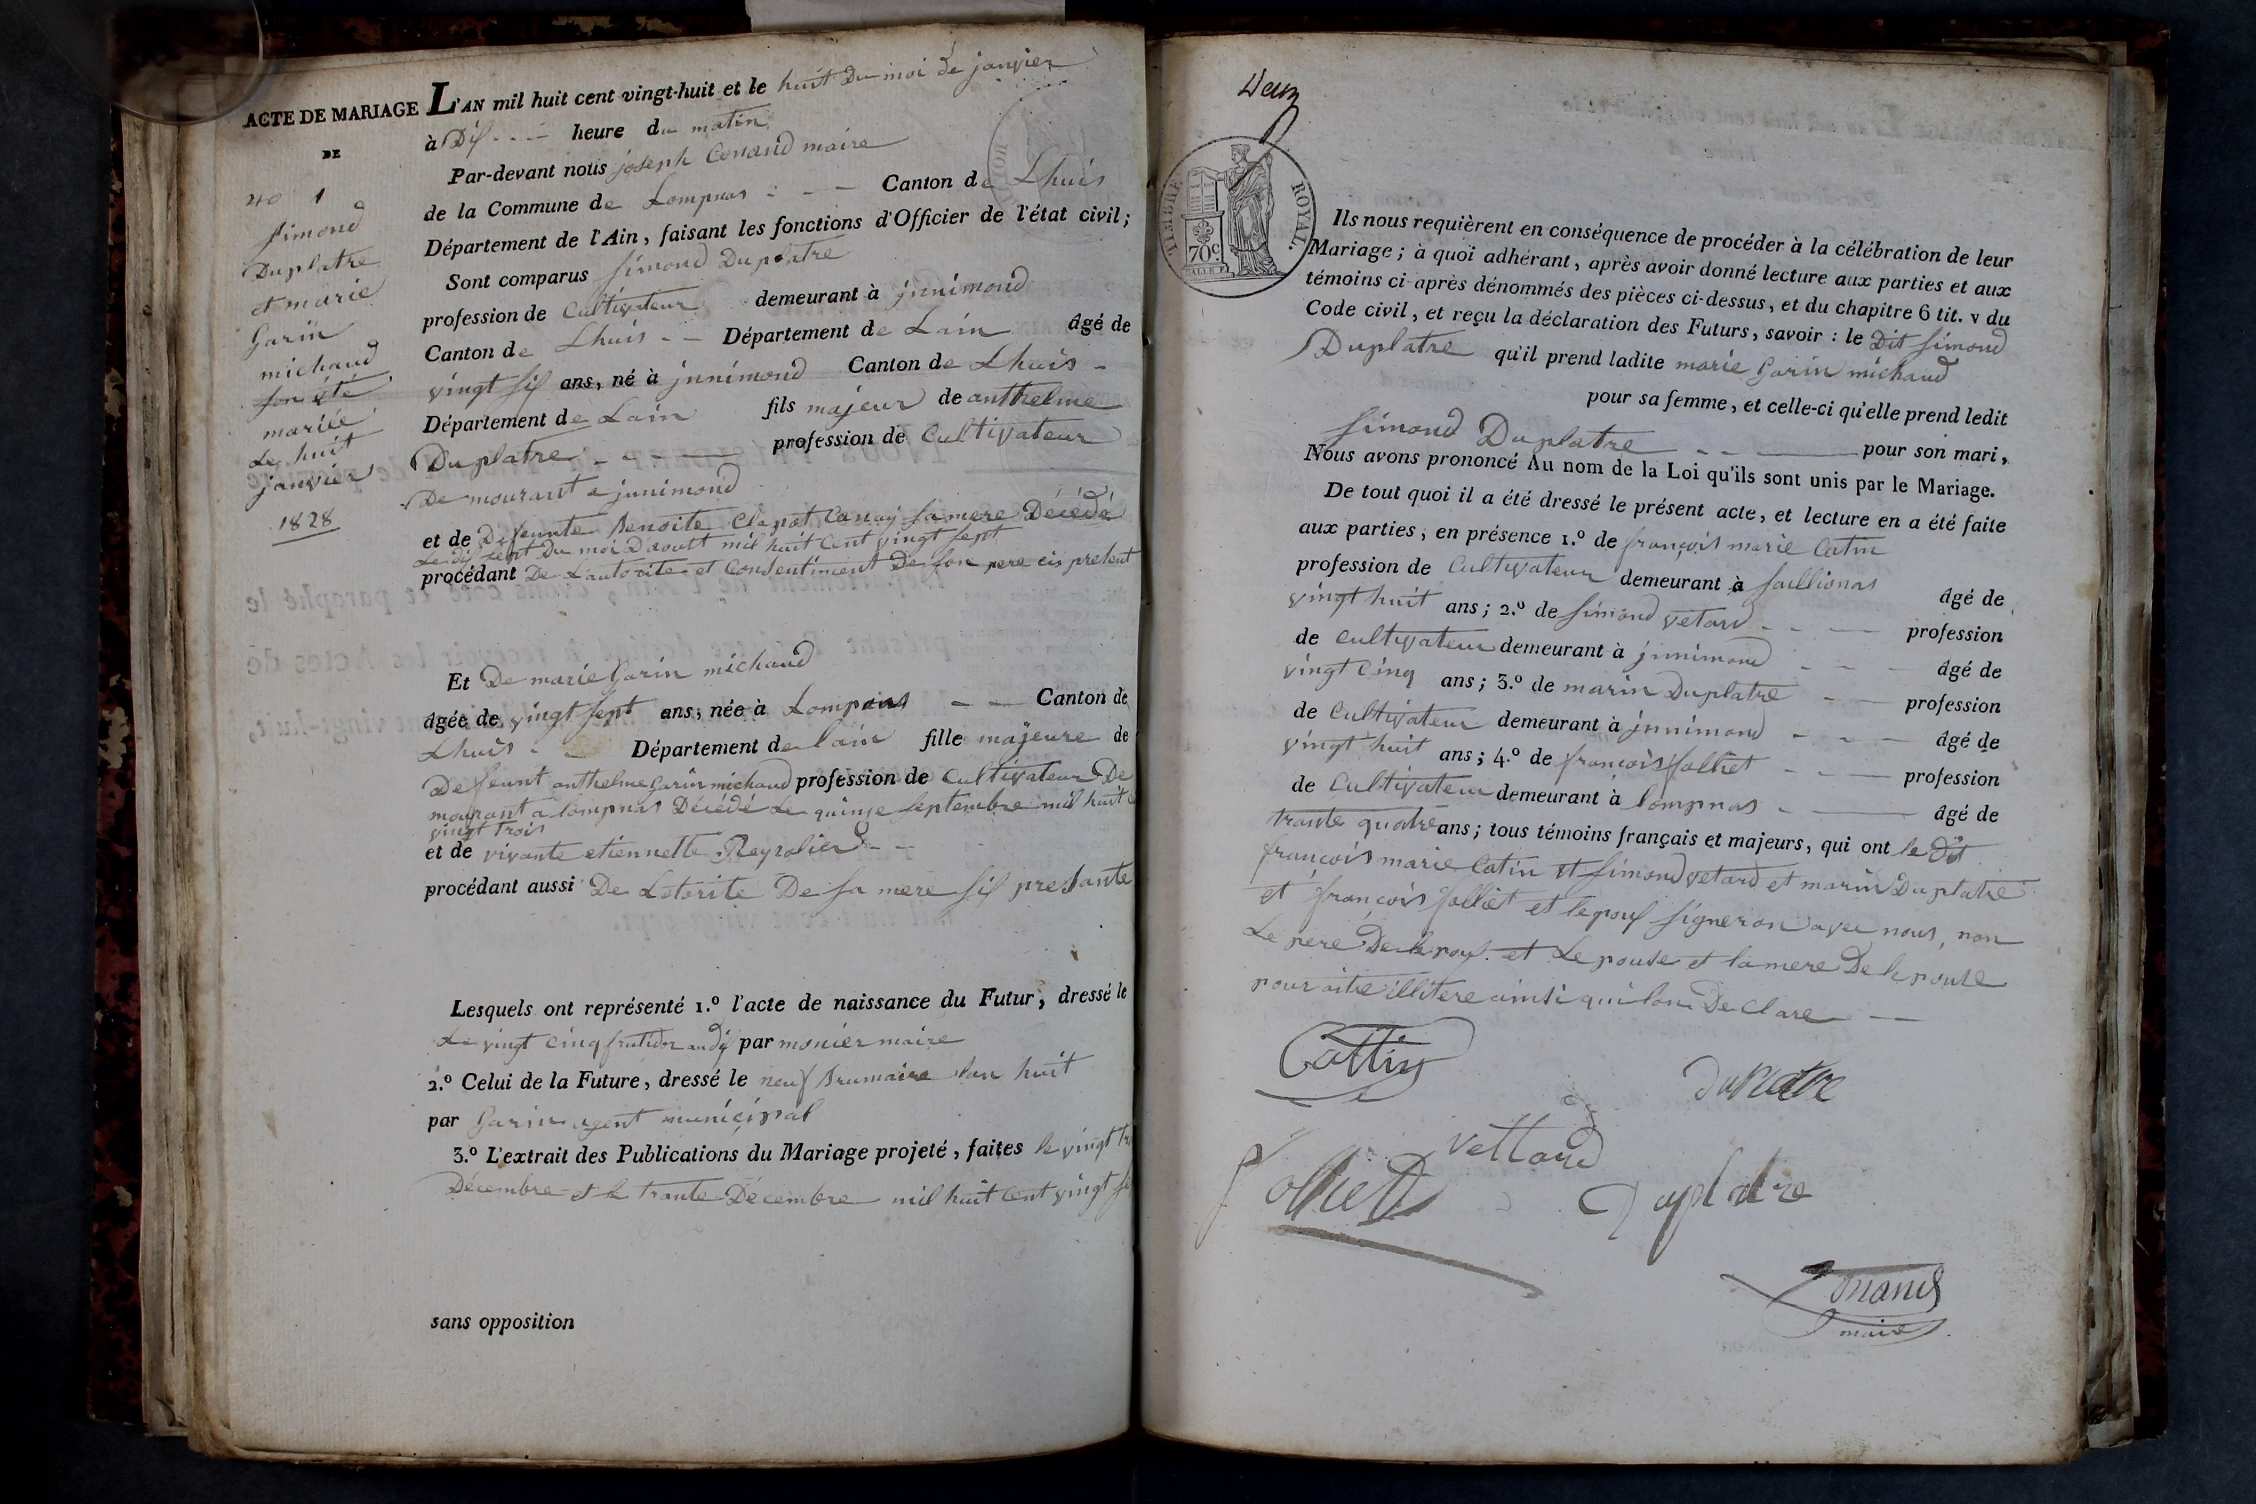 ACTE DE MARIAGE
DE
no 1
simond
Duplatre
et marie
Garin
michaud
son été
mariée
Le huit
janvier
1828
L'AN mil huit cent vingt-huit et le huit Du moi de janvier
à Dis heure du matin
Par-devant nous joseph Conand maire
de la Commune de Lompnas Canton de Lhuis
Département de l'Ain, faisant les fonctions d'Officier de l'état civil;
Sont comparus simond Duplatre
profession de Cultivateur demeurant à jnnimond
Canton de Lhuis Département de Lain âgé de
vingt sis ans, né à jnnimond Canton de Lhuis
Département de Lain fils majeur de anthelme
Duplatre profession de Cultivateur
De mourant a junimond
et de Defeunte Benoite sa mere Décédé
Le dis sept Du moi D'aoutt mil huit Cent vingt sept
procédant De Lautorite et Consentiment De son pere cis présent
Et De marie Garin michaud
âgée de vingt sept ans, née à Lompnas Canton de
Lhuis Département de lain fille majeure de
Defeunt anthelme Garin michaud profession de Cultivateur De
mourant a lompnas Décédé Le quinse septembre mil huit
vingt trois
et de vivante etiennette Reyrolier
procédant aussi De Lotorite De sa mere sis presante
Lesquels ont représenté 1.º l'acte de naissance du Futur, dressé le
Le vingt cinq frutidor an dis par monier maire
2.º Celui de la Future, dressé le neuf Brumaire lan huit
par Garin agent municipal
3.º L'extrait des Publications du Mariage projeté, faites le vingt
Décembre et le trante Décembre mil huit Cent vingt
sans opposition
Deux
TIMBRE ROYAL.
70c
Ils nous requièrent en conséquence de procéder à la célébration de leur
Mariage; à quoi adhérant, après avoir donné lecture aux parties et aux
témoins ci-après dénommés des pièces ci-dessus, et du chapitre 6 tit. v du
Code civil, et reçu la déclaration des Futurs, savoir : le Dit simond
Duplatre qu'il prend ladite marie Garin michaud
pour sa femme, et celle-ci qu'elle prend ledit
simond Duplatre pour son mari,
Nous avons prononcé Au nom de la Loi qu'ils sont unis par le Mariage.
De tout quoi il a été dressé le présent acte, et lecture en a été faite
aux parties, en présence 1.º de françois marie Catin
profession de Cultivateur demeurant à saillionas âgé de
vingt huit ans; 2.º de simond vetard profession
de cultivateur demeurant à jnnimond âgé de
vingt cinq ans; 3.º de marin Duplatre profession
de Cultivateur demeurant à jnnimond âgé de
vingt huit ans; 4.º de françois folliet profession
de Cultivateur demeurant à lompnas âgé de
trante quatre ans; tous témoins français et majeurs, qui ont le dit
françois marie Catin et simond vetard et marin Duplatre
et françois folliet et lepous signeron avec nous, non
Le pere De lepous et Lepouse et la mere De lepouse
pour aitre illitere ainsi qui lon Declare
Cattin
duplatre
vettard
folliet
Duplatre
Conand
maire